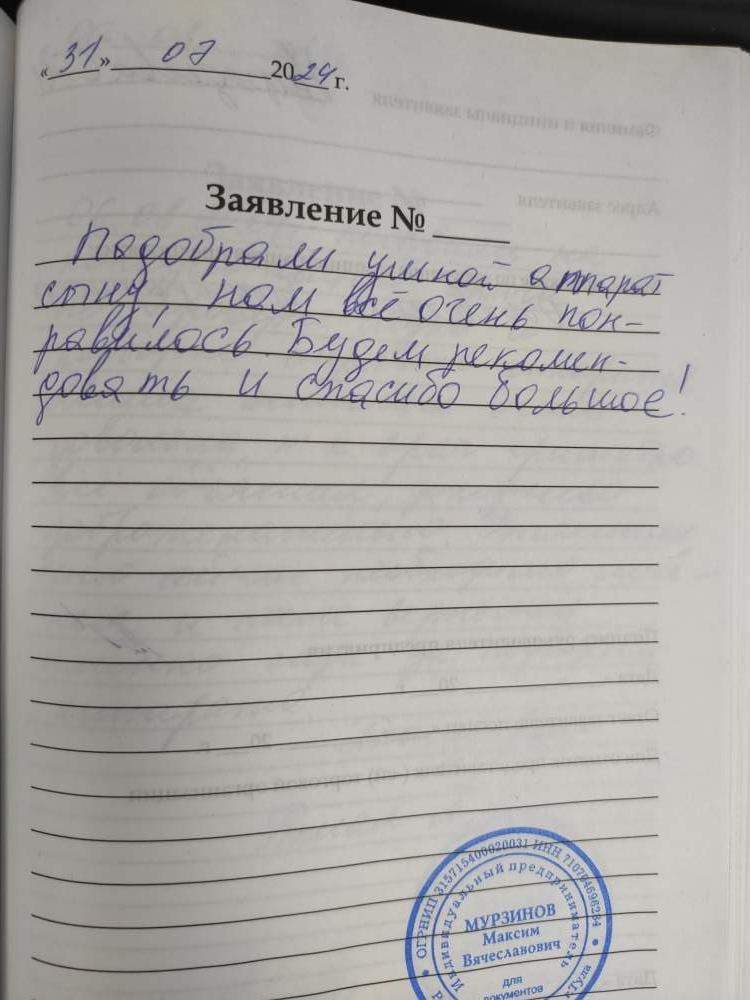 «31» 07 2024 г.
Заявление №
Подобрали ушной аппарат
сыну, нам всё очень пон-
равилось. Будем рекомен-
довать и спасибо большое!
ОГРНИП 315715400020031 ИНН 710704696284
Индивидуальный предприниматель
МУРЗИНОВ
Максим
Вячеславович
для
документов
г.Тула